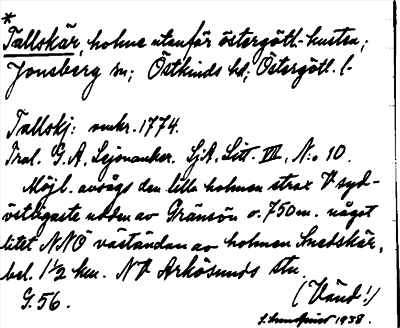 *
Tallskär, holme utanför östergötl.-kusten;
Jonsberg sn; Östkinds hd; Östergötl. l-
Tallskj: omkr. 1774.
Tral. G.A. Lejonanker. SjA, Litt. VII, N:o 10.
Möjl. avsågs den lilla holmen strax V syd-
västligaste udden av Gränsön o. 750 m. något
litet NNÖ väständan av holmen Snedskär,
bel. 1½ km. NV Arkösunds stn.
G. 56.
(Vänd!)
1938.